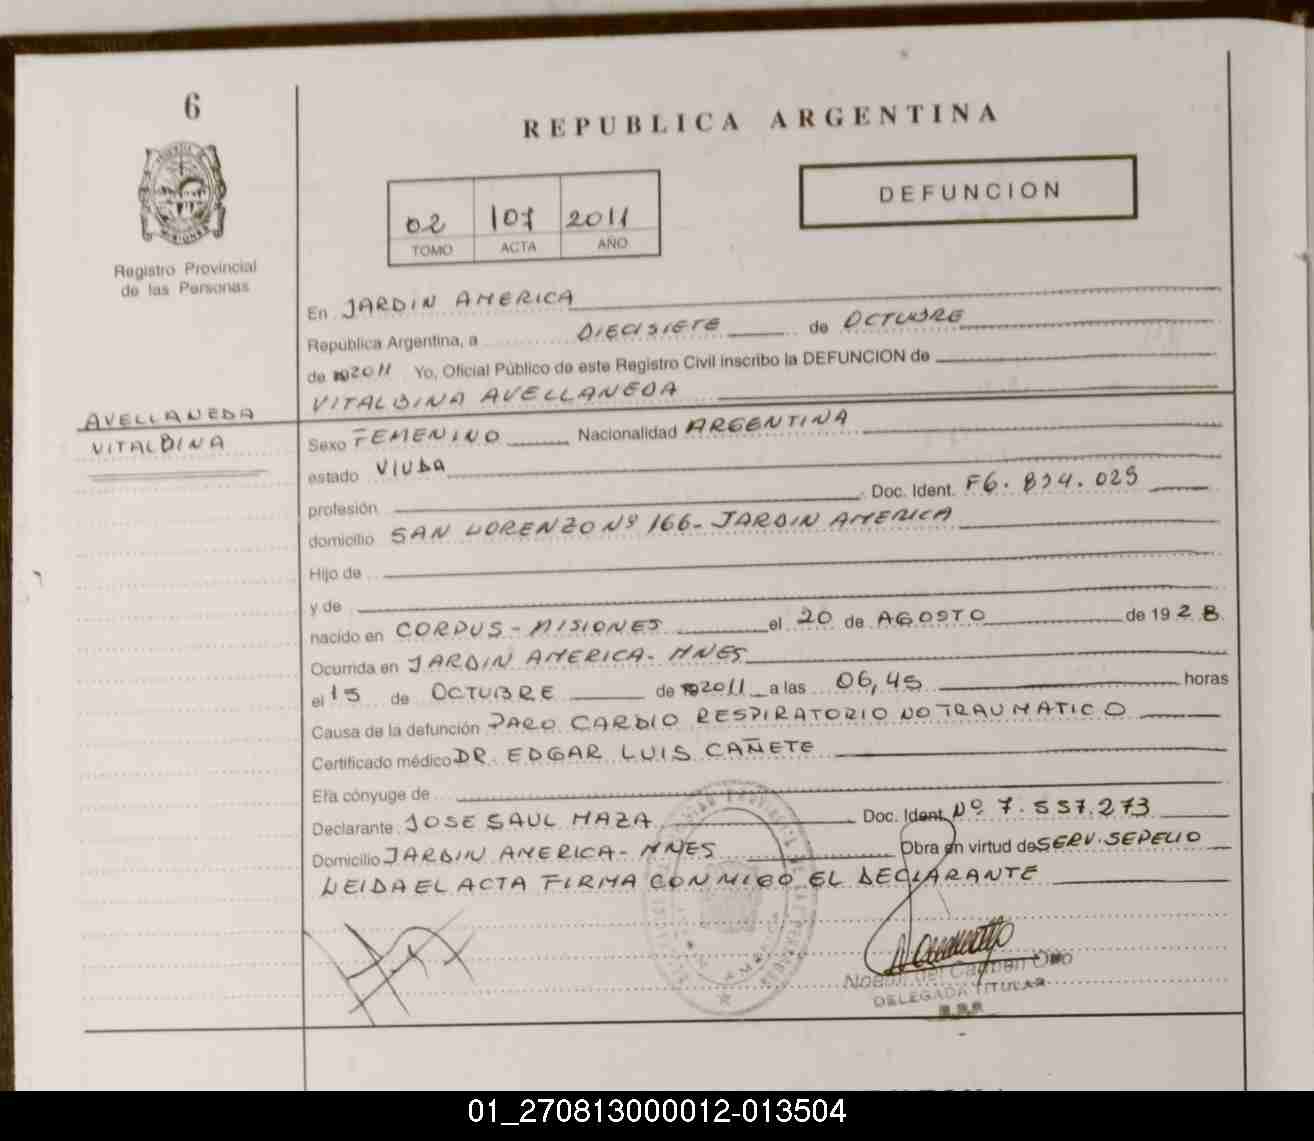 6
REPUBLICA ARGENTINA
DEFUNCION
02 107 2011
TOMO ACTA AÑO
Registro Provincial
de las Personas
En JARDIN AMERICA
República Argentina, a DIECISIETE de OCTUBRE
de 2011 Yo, Oficial Público de este Registro Civil inscribo la DEFUNCION de
VITALBINA AVELLANEDA
AVELLANEDA
VITALBINA
Sexo FEMENINO Nacionalidad ARGENTINA
estado VIUDA
profesión Doc. Ident. F6.
domicilio SAN LORENZO Nº 166 - JARDIN AMERICA
Hijo de
y de
nacido en CORPUS - MISIONES el 20 de AGOSTO de 1928
Ocurrida en JARDIN AMERICA - MNES
el 15 de OCTUBRE de 2011 a las 06,45 horas
Causa de la defunción PARO CARDIO RESPIRATORIO NO TRAUMATICO
Certificado médico DR. EDGAR LUIS CAÑETE
Era cónyuge de
Declarante JOSE SAUL MAZA Doc. Ident. Nº 7.557.273
Domicilio JARDIN AMERICA - MNES Obra en virtud de SERV. SEPELIO
LEIDA EL ACTA FIRMA CONMIGO EL DECLARANTE
del Carmen
DELEGADA TITULAR
01_270813000012-013504